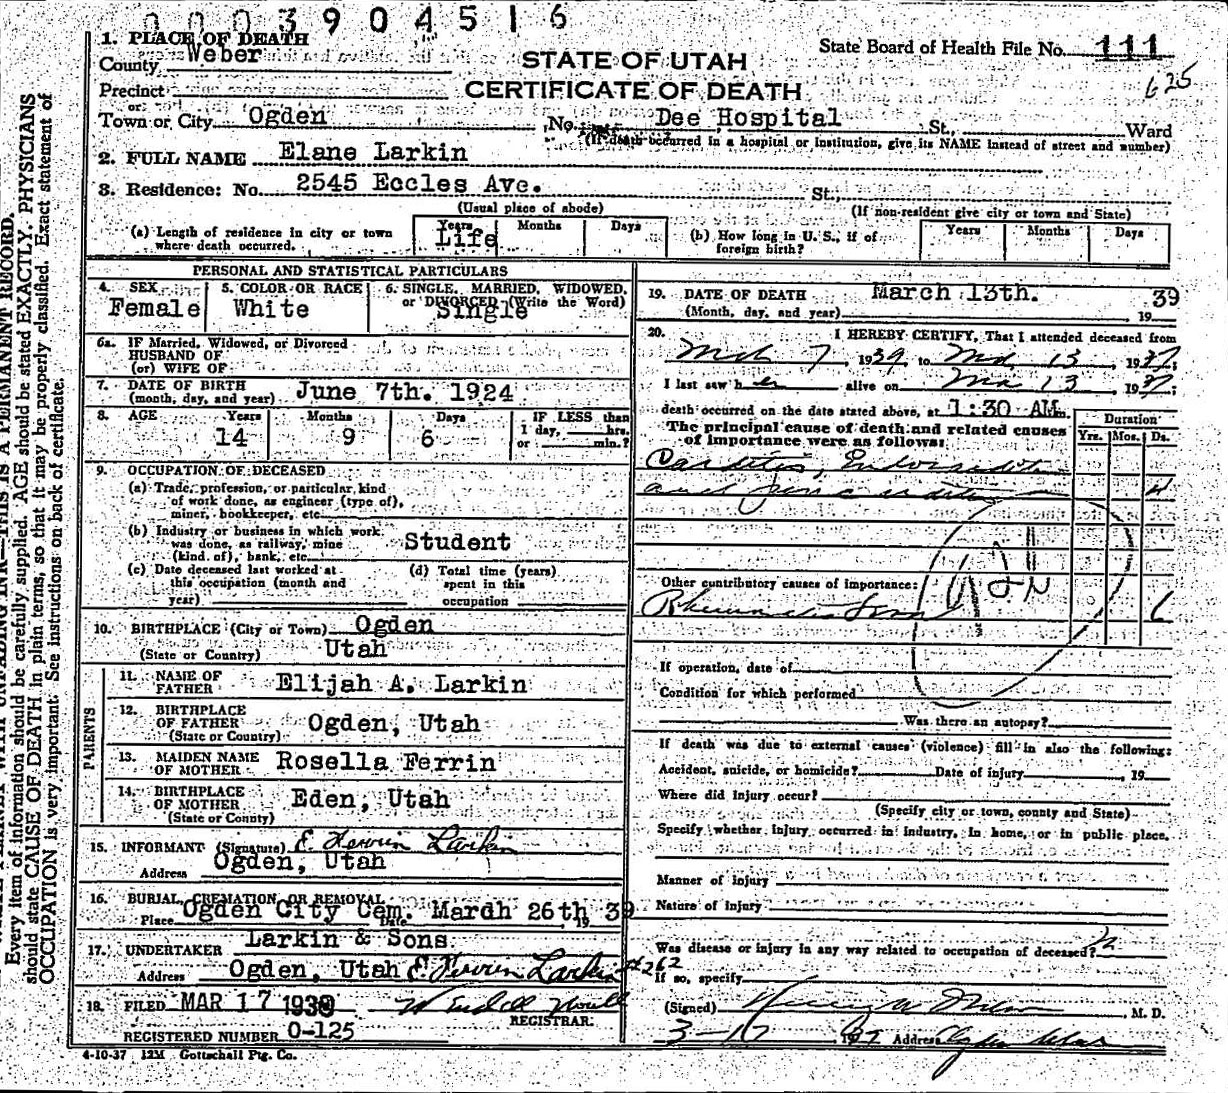 0003904516
1. PLACE OF DEATH
County Weber
STATE OF UTAH
CERTIFICATE OF DEATH
State Board of Health File No. 111
625
Precinct
or
Town or City Ogden No. Dee Hospital St., Ward
(If death occurred in a hospital or institution, give its NAME instead of street and number)
2. FULL NAME Elane Larkin
3. Residence: No. 2545 Eccles Ave. St.,
(Usual place of abode) (If non-resident give city or town and State)
(a) Length of residence in city or town where death occurred. Years Life Months Days
(b) How long in U. S., if of foreign birth? Years Months Days
PERSONAL AND STATISTICAL PARTICULARS
4. SEX Female
5. COLOR OR RACE White
6. SINGLE, MARRIED, WIDOWED, or DIVORCED (Write the Word) Single
6a. IF Married, Widowed, or Divorced
HUSBAND OF
(or) WIFE OF
7. DATE OF BIRTH
(month, day, and year) June 7th. 1924
8. AGE Years 14 Months 9 Days 6 IF LESS than 1 day, hrs. or min.?
9. OCCUPATION OF DECEASED
(a) Trade, profession, or particular kind
of work done, as engineer (type of),
miner, bookkeeper, etc.
(b) Industry or business in which work
was done, as railway, mine
(kind of), bank, etc. Student
(c) Date deceased last worked at
this occupation (month and
year)
(d) Total time (years)
spent in this
occupation
10. BIRTHPLACE (City or Town) Ogden
(State or Country) Utah
PARENTS
11. NAME OF FATHER Elijah A. Larkin
12. BIRTHPLACE OF FATHER
(State or Country) Ogden, Utah
13. MAIDEN NAME OF MOTHER Rosella Ferrin
14. BIRTHPLACE OF MOTHER
(State or County) Eden, Utah
15. INFORMANT (Signature) E. Ferrin Larkin
Address Ogden, Utah
16. BURIAL, CREMATION OR REMOVAL
Place Ogden City Cem. Date March 26th 1939
17. UNDERTAKER Larkin & Sons
Address Ogden, Utah E. Ferrin Larkin #262
18. FILED MAR 17 1939
REGISTRAR:
REGISTERED NUMBER 0-125
4-10-37 12M Gottschall Ptg. Co.
19. DATE OF DEATH March 13th. 39
(Month, day, and year) 19
20. I HEREBY CERTIFY, That I attended deceased from
Mch 7, 1939, to Mch 13, 1939;
I last saw her alive on Mch 13 1939;
death occurred on the date stated above, at 1:30 AM m.
The principal cause of death and related causes
of importance were as follows:
Duration
Yrs. Mos. Ds.
Carditis, Endocarditis
and pericarditis 4
Other contributory causes of importance:
Rheumatic 6
If operation, date of
Condition for which performed
Was there an autopsy?
If death was due to external causes (violence) fill in also the following:
Accident, suicide, or homicide? Date of injury 19
Where did injury occur?
(Specify city or town, county and State)
Specify whether injury occurred in industry, in home, or in public place.
Manner of injury
Nature of injury
Was disease or injury in any way related to occupation of deceased?
If so, specify
(Signed) M. D.
3-17 1939 Address Ogden Utah
Every item of information should be carefully supplied. AGE should be stated EXACTLY. PHYSICIANS
should state CAUSE OF DEATH in plain terms, so that it may be properly classified. Exact statement of
OCCUPATION is very important. See instructions on back of certificate.